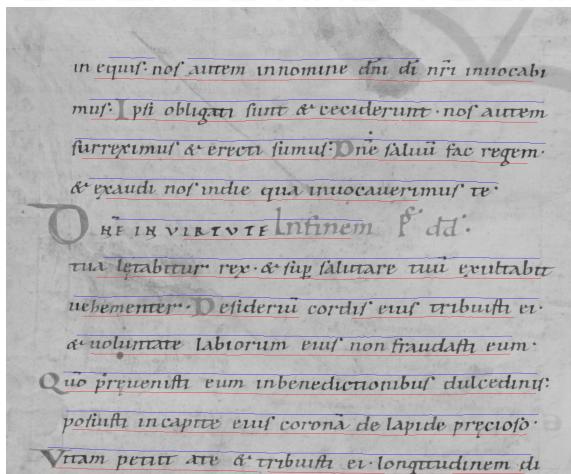 in equis· nos autem innomine dn̄i dī nr̄i inuocabi
mus· Ipsi obligati sunt & ceciderunt · nos autem
surreximus & erecti sumus: Dn̄e saluū fac regem·
& exaudi nos indie qua inuocauerimus te·
DN̄E IN VIRTVTE Infinem Ps̄· dd̄·
tua lętabitur rex· & sup̄ salutare tuū exultabit
uehementer· Desideriū cordis eius tribuisti ei·
& uoluntate labiorum eius non fraudasti eum·
Quō pręuenisti eum inbenedictionibus dulcedinis:
posuisti incapite eius coronā de lapide pręcioso·
Vitam petiit ate & tribuisti ei· longitudinem di